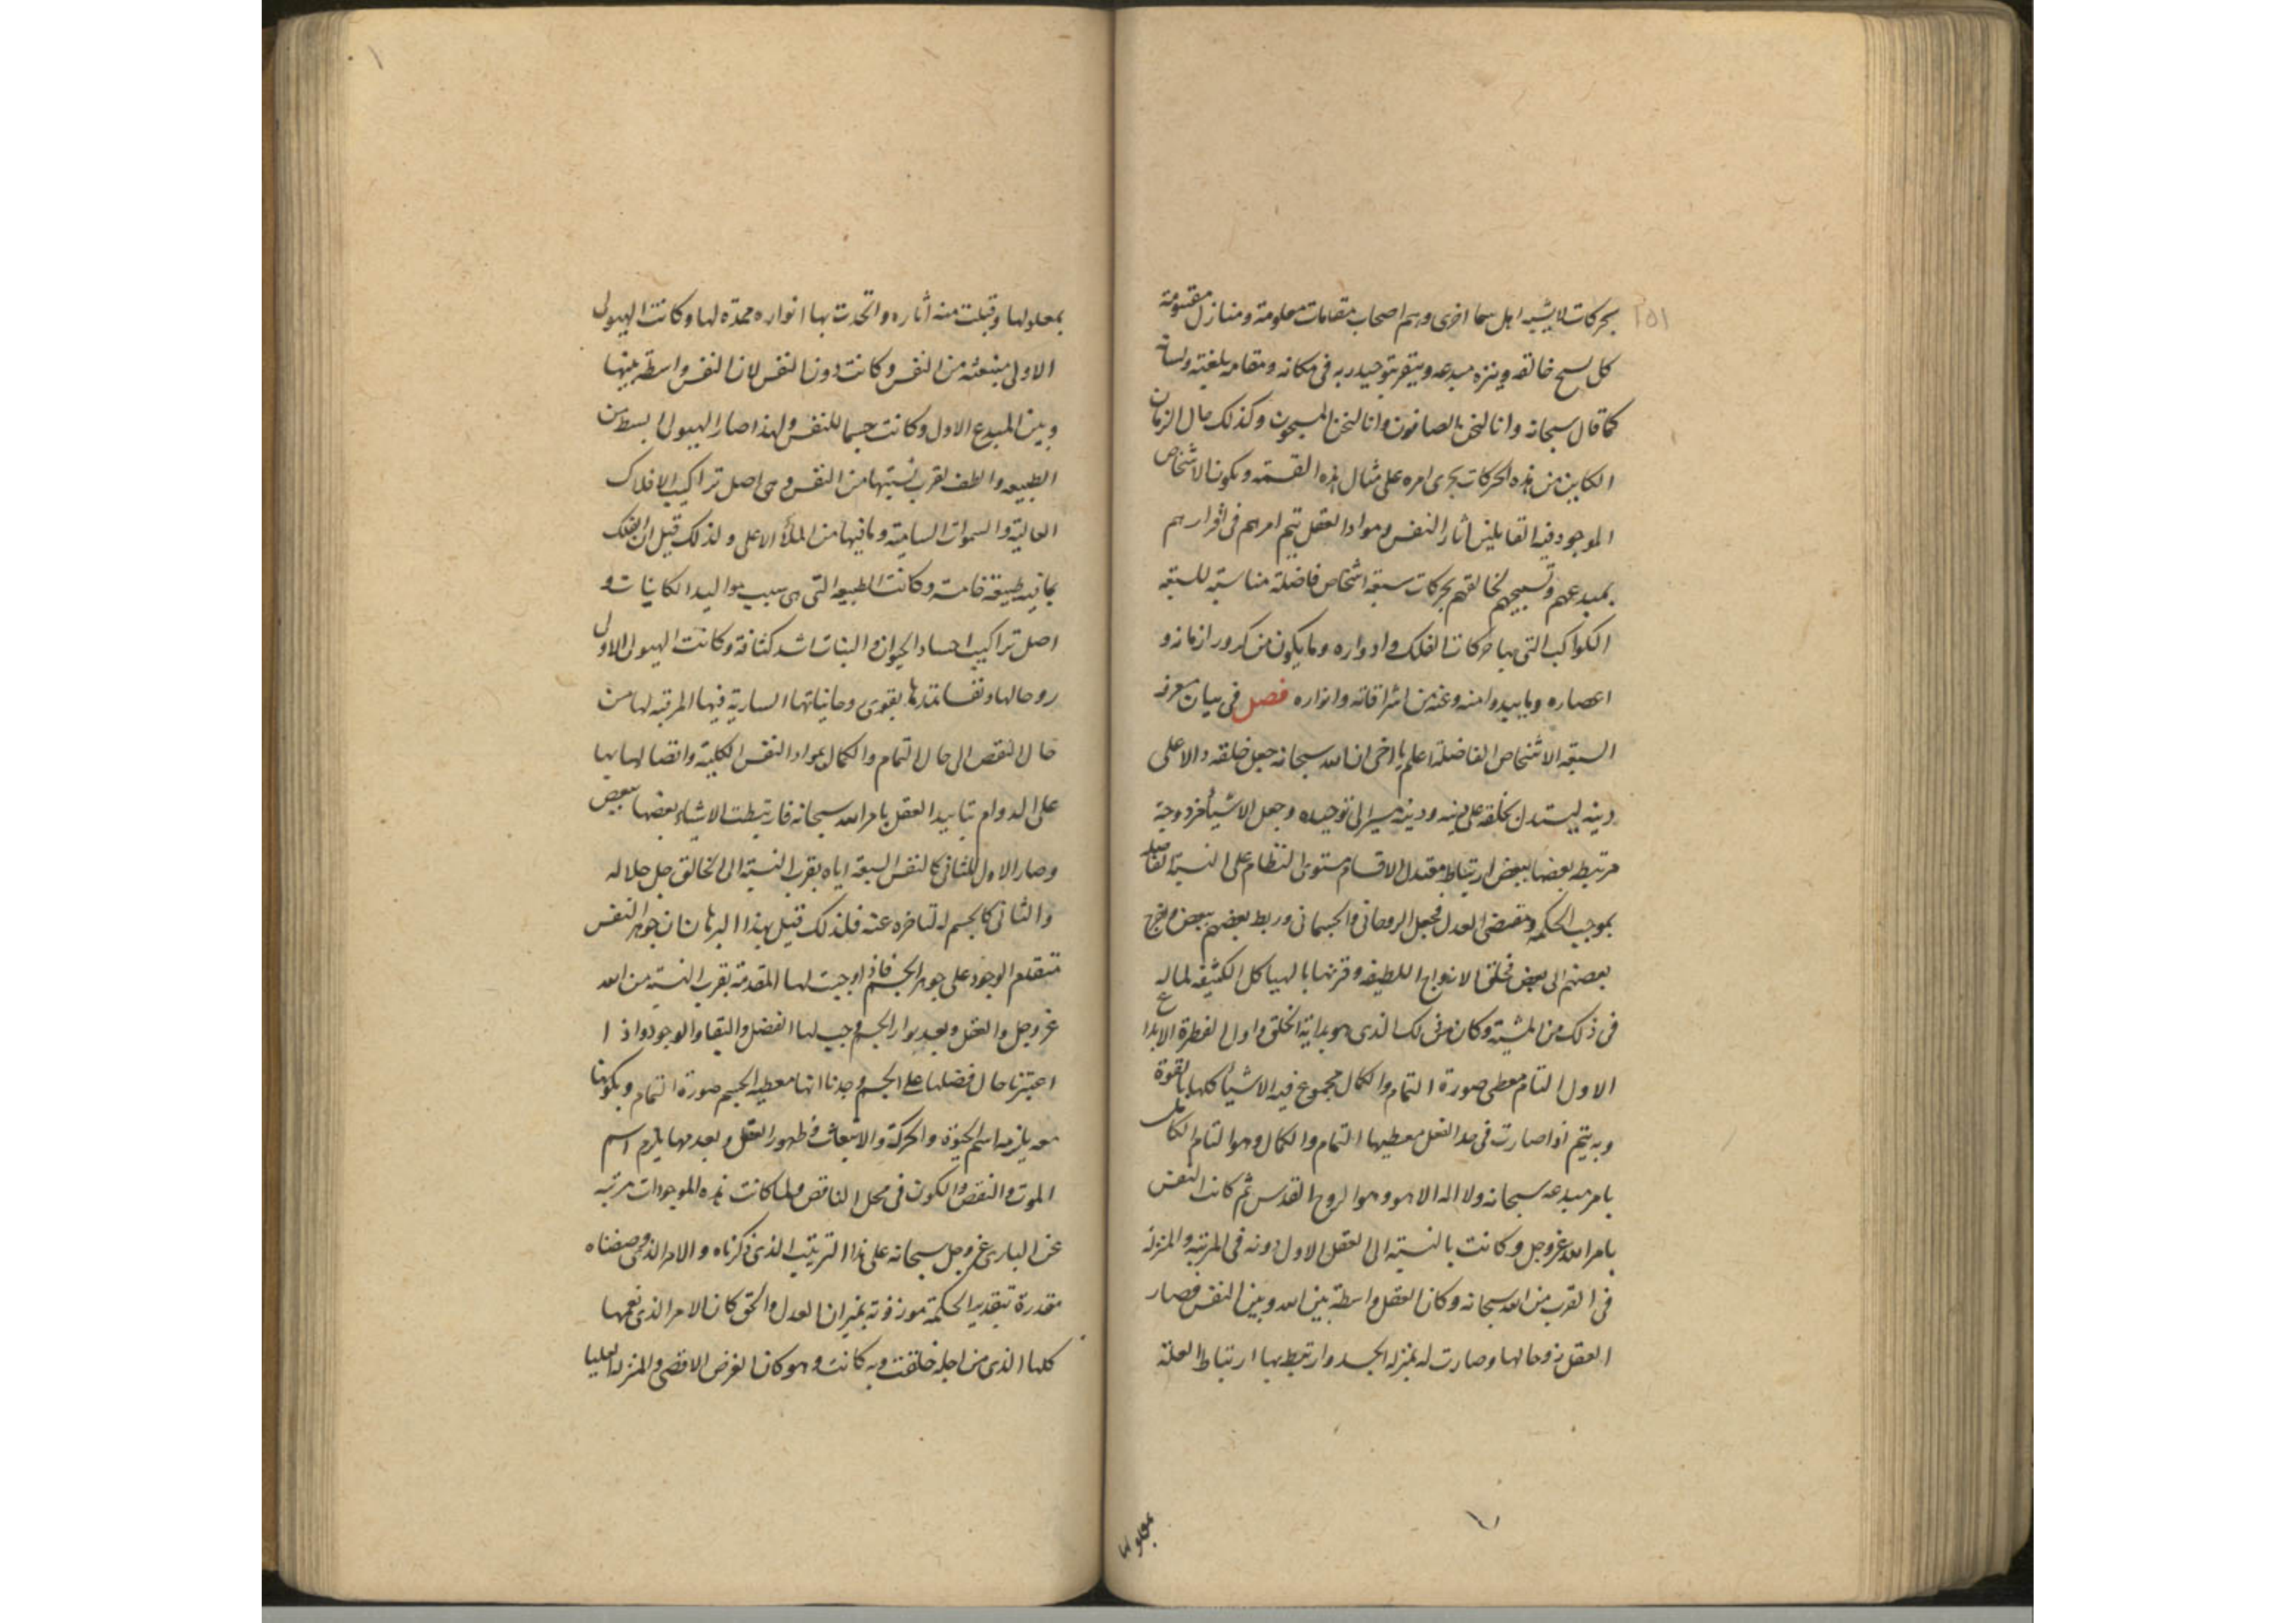 بحركات لا يشبه اهل سما اخرى وهم اصحاب مقامات معلومة ومنازل مقسومة
كل يسبح خالقه وينزه مبدعه ويتقرب بتوحيد ربه فى مكانه ومقامه بلغته ولسانه
كما قال سبحانه وانا لنحن الصافون وانا لنحن المسبحون وكذلك حال الزمان
الكاين من هذه الحركات يجرى امره على مثال هذه القسمة ويكون الاشخاص
الموجود فيه القابلين اثار النفس ومواد العقل يتم امرهم فى اقرارهم
بمبدعهم وتسبيحهم لخالقهم بحركات سبعة اشخاص فاضلة مناسبة للسبعة
الكواكب التى بها حركات الفلك وادواره وما يكون من كرور ازمانه و
اعصاره وما يبدوا منه وعنه من اشراقاته وانواره فصل فى بيان معرفة
السبعة الاشخاص الفاضلة اعلم يا اخى ان الله سبحانه جعل خلقه دالا على
دينه ليستدل بخلقه على دينه ودينه على توحيده وجعل الاشيأ مزدوجة
مرتبطه بعضها ببعض ارتباط معتدل الاقسام مستوى النظام على النسبة الفاضلة
بموجب الحكمه ومقتضى العدل فجعل الروحانى والجسمانى وربط بعضهم ببعض
بعضهم الى بعض فخلق الازواج اللطيفه وقرنها بالهياكل الكثيفه لما له
فى ذلك من المشية وكان من ذلك الذى هو بداية الخلق واول الفطرة الابداع
الاول التام معطى صورة التمام والكمال مجموع فيه الاشيأ كلها بالقوة
وبه يتم اذا صارت فى حد الفعل معطيها التمام والكمال وهو التام الكامل
بامر مبدعه سبحانه ولا اله الا هو وهو الروح القدس ثم كانت النفس
بامر الله عز وجل وكانت بالنسبة الى العقل الاول دونه فى المرتبة والمنزلة
فى القرب من الله سبحانه وكان العقل واسطة بين الله وبين النفس فصار
العقل روحا لها وصارت له بمنزله الجسد وارتبط بها ارتباط العلة
بمعلولها
بمعلولها وقبلت منه آثاره واتحدت بها انواره ممدة لها وكانت الهيولى
الاولى منبعثه من النفس وكانت دون النفس لان النفس واسطة بينها
وبين المبدع الاول وكانت جسما للنفس ولهذا صار الهيولى ابسط من
الطبيعه والطف لقرب نسبتها من النفس وهى اصل تراكيب الافلاك
العالية والسموات السامية وما فيها من الملأ الاعلى ولذلك قيل ان الفلك
بما فيه طبيعة خامسة وكانت الطبيعه التى هى سبب مواليد الكاينات و
اصل تراكيب اجساد الحيوان والنبات اشد كثافة وكانت الهيولى الاولى
روحا لها ونفسا بقوى روحانياتها السارية فيها المرتبه لها من
حال النقص الى حال التمام والكمال بمواد النفس الكلية واتصالها بها
على الدوام بتاييد العقل بامر الله سبحانه فارتبطت الاشياء بعضها ببعض
وصار الاول للثانى كالنفس لسبقه اياه بقرب النسبة الى الخالق جل جلاله
والثانى كالجسم له لتاخره عنه فلذلك قيل بهذا البرهان ان جوهر النفس
متقدم الوجود على جوهر الجسم فاذ اوجبت لها المقدمة بقرب النسبة من الله
عز وجل والعقل وبعد الجسم وجب لها الفضل والبقا والوجود واذا
اعتبرنا حال فضلها على الجسم وجدنا انها معطيه الجسم صورة التمام وبكونها
معه يلزمه اسم الحيوة والحركة والانبعاث فى ظهور العقل وبعدمها يلزم اسم
الموت والنقص والكون فى محل الناقص ولما كانت هذه الموجودات مرتبه
عن البارى عز وجل سبحانه على هذا الترتيب الذى ذكرناه والامر الذى وصفناه
مقدرة بتقدير الحكمة موزونة بميزان العدل والحق كان الامر الذى يعمها
كلها الذى من اجله خلقت وبه كانت وهو كان الغرض الاقصى والمنزلة العليا